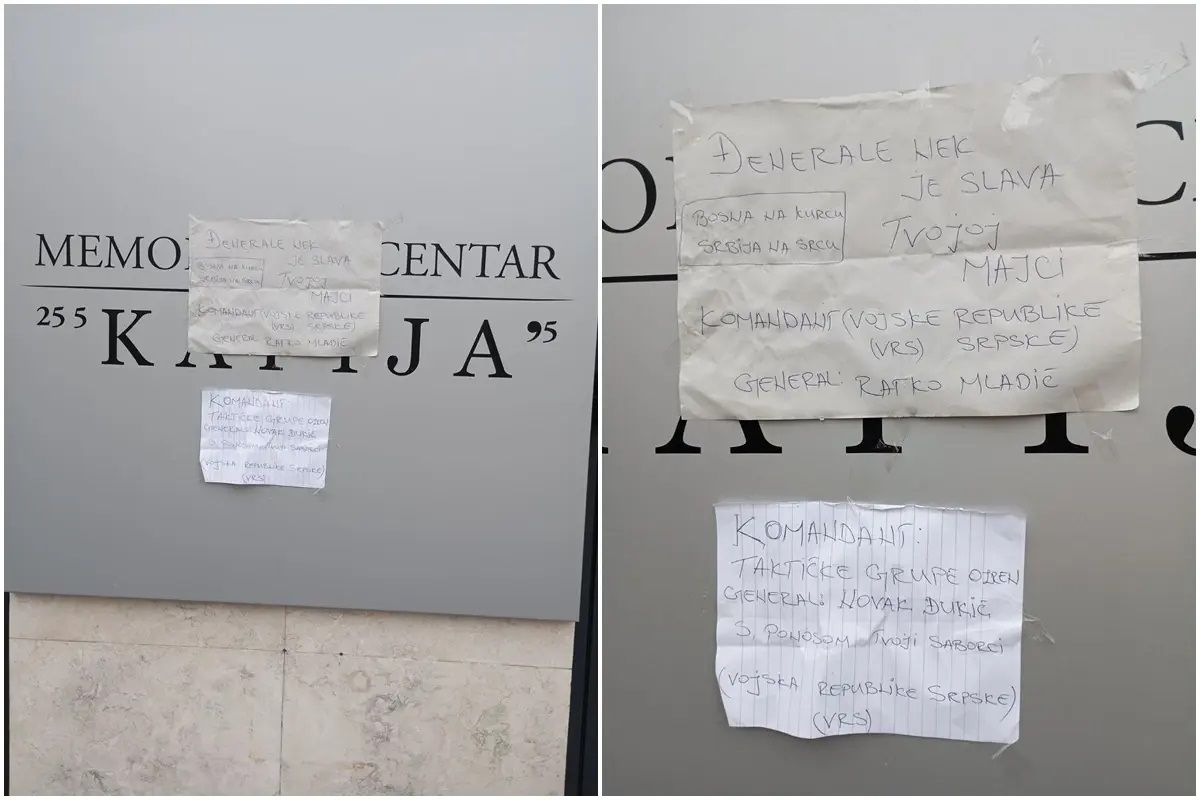 MEMO CENTAR
25 5 "KATIJA" 95
ĐENERALE NEK
JE SLAVA
BOSNA NA KURCU
SRBIJA NA SRCU
TVOJOJ
MAJCI
KOMANDANT (VOJSKE REPUBLIKE
(VRS) SRPSKE)
GENERAL: RATKO MLADIĆ
KOMANDANT:
TAKTIČKE GRUPE OZREN
GENERAL: NOVAK ĐUKIĆ
S PONOSOM TVOJI SABORCI
(VOJSKA REPUBLIKE SRPSKE)
(VRS)
ĐENERALE NEK
JE SLAVA
BOSNA NA KURCU
SRBIJA NA SRCU
TVOJOJ
MAJCI
KOMANDANT (VOJSKE REPUBLIKE
(VRS) SRPSKE)
GENERAL: RATKO MLADIĆ
KOMANDANT:
TAKTIČKE GRUPE OZREN
GENERAL: NOVAK ĐUKIĆ
S PONOSOM TVOJI SABORCI
(VOJSKA REPUBLIKE SRPSKE)
(VRS)